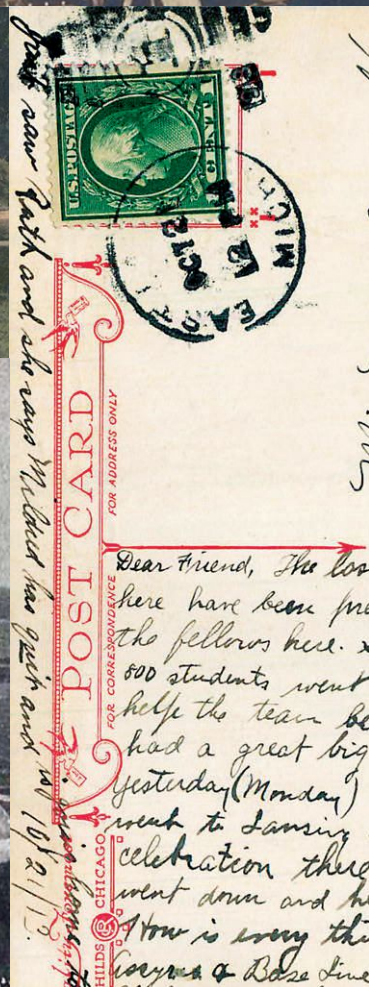 U.S. POSTAGE
1 ONE CENT
EAST
MICH
OCT 21
POST CARD
FOR ADDRESS ONLY
FOR CORRESPONDENCE
CHILDS CHICAGO
Dear Friend, The
here have been
the fellows here.
800 students went
help the team
had a great big
yesterday (Monday)
went to Lansing
celebration there
went down and
How is every
& Base Line
Just saw Ruth and she says Mildred has quit and is
10/21/13.